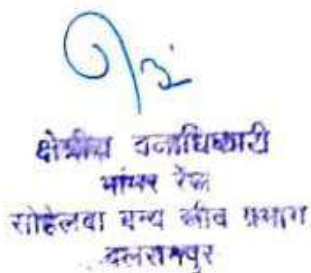 क्षेत्रीय वनाधिकारी
भांभर रेंज
सोहेलवा वन्य जीव प्रभाग
बलरामपुर